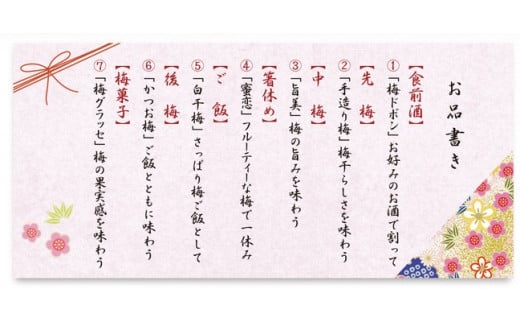 お品書き
【食前酒】
①「梅ドボン」お好みのお酒で割って
【先梅】
②「手造り梅」梅干らしさを味わう
【中梅】
③「旨美」梅の旨みを味わう
【箸休め】
④「蜜恋」フルーティーな梅で一休み
【ご飯】
⑤「白干梅」さっぱり梅ご飯として
【後梅】
⑥「かつお梅」ご飯とともに味わう
【梅菓子】
⑦「梅グラッセ」梅の果実感を味わう